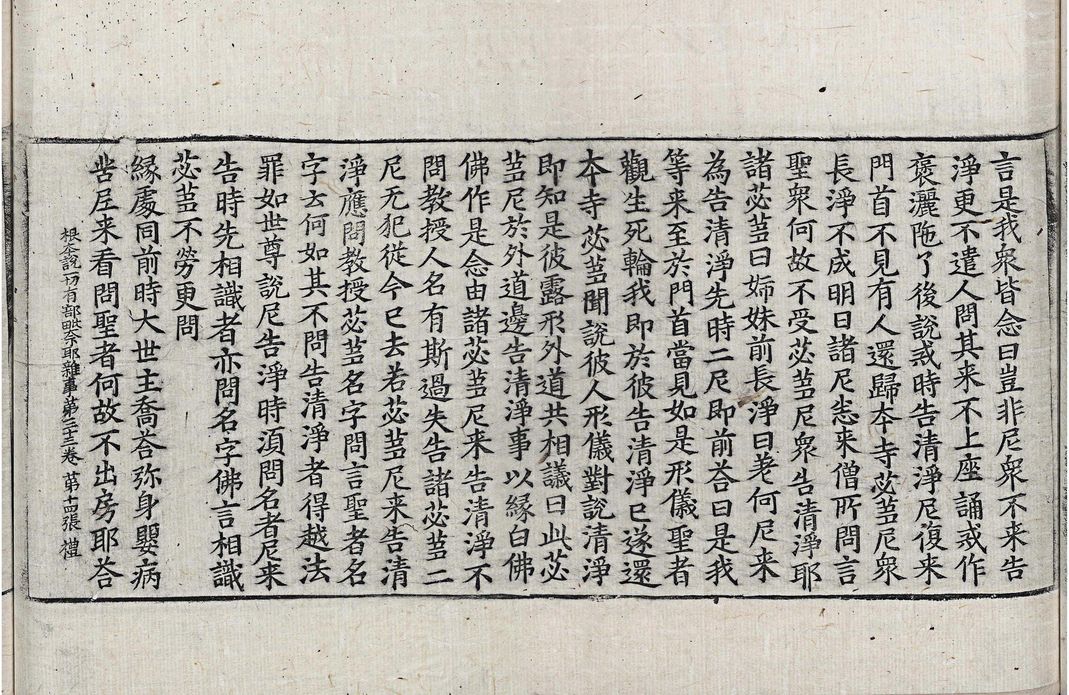 言是我衆皆念曰豈非尼衆不来告
淨更不遣人問其来不上座誦戒作
褒灑陁了後說戒時告清淨尼復来
門首不見有人還歸夲寺苾蒭尼衆
長淨不成明日諸尼悉来僧所問言
聖衆何故不受苾蒭尼衆告清淨耶
諸苾蒭曰姉妹前長淨曰差何尼来
為告清淨先時二尼即前荅曰是我
等来至於門首當見如是形儀聖者
觀生死輪我即於彼告清淨已遂還
夲寺苾蒭聞說彼人形儀對說清淨
即知是彼露形外道共相議曰此苾
蒭尼於外道邊告清淨事以縁白佛
佛作是念由諸苾蒭尼来告清淨不
問教授人名有斯過失告諸苾蒭二
尼无犯從今已去若苾蒭尼来告清
淨應問教授苾蒭名字問言聖者名
字云何如其不問告清淨者得越法
罪如世尊說尼告淨時湏問名者尼来
告時先相識者亦問名字佛言相識
苾蒭不勞更問
縁處同前時大世主喬荅弥身嬰病
苦尼来看問聖者何故不出房耶荅
根夲說一切有部毗奈耶雜事第三十三卷 第十四張 禮